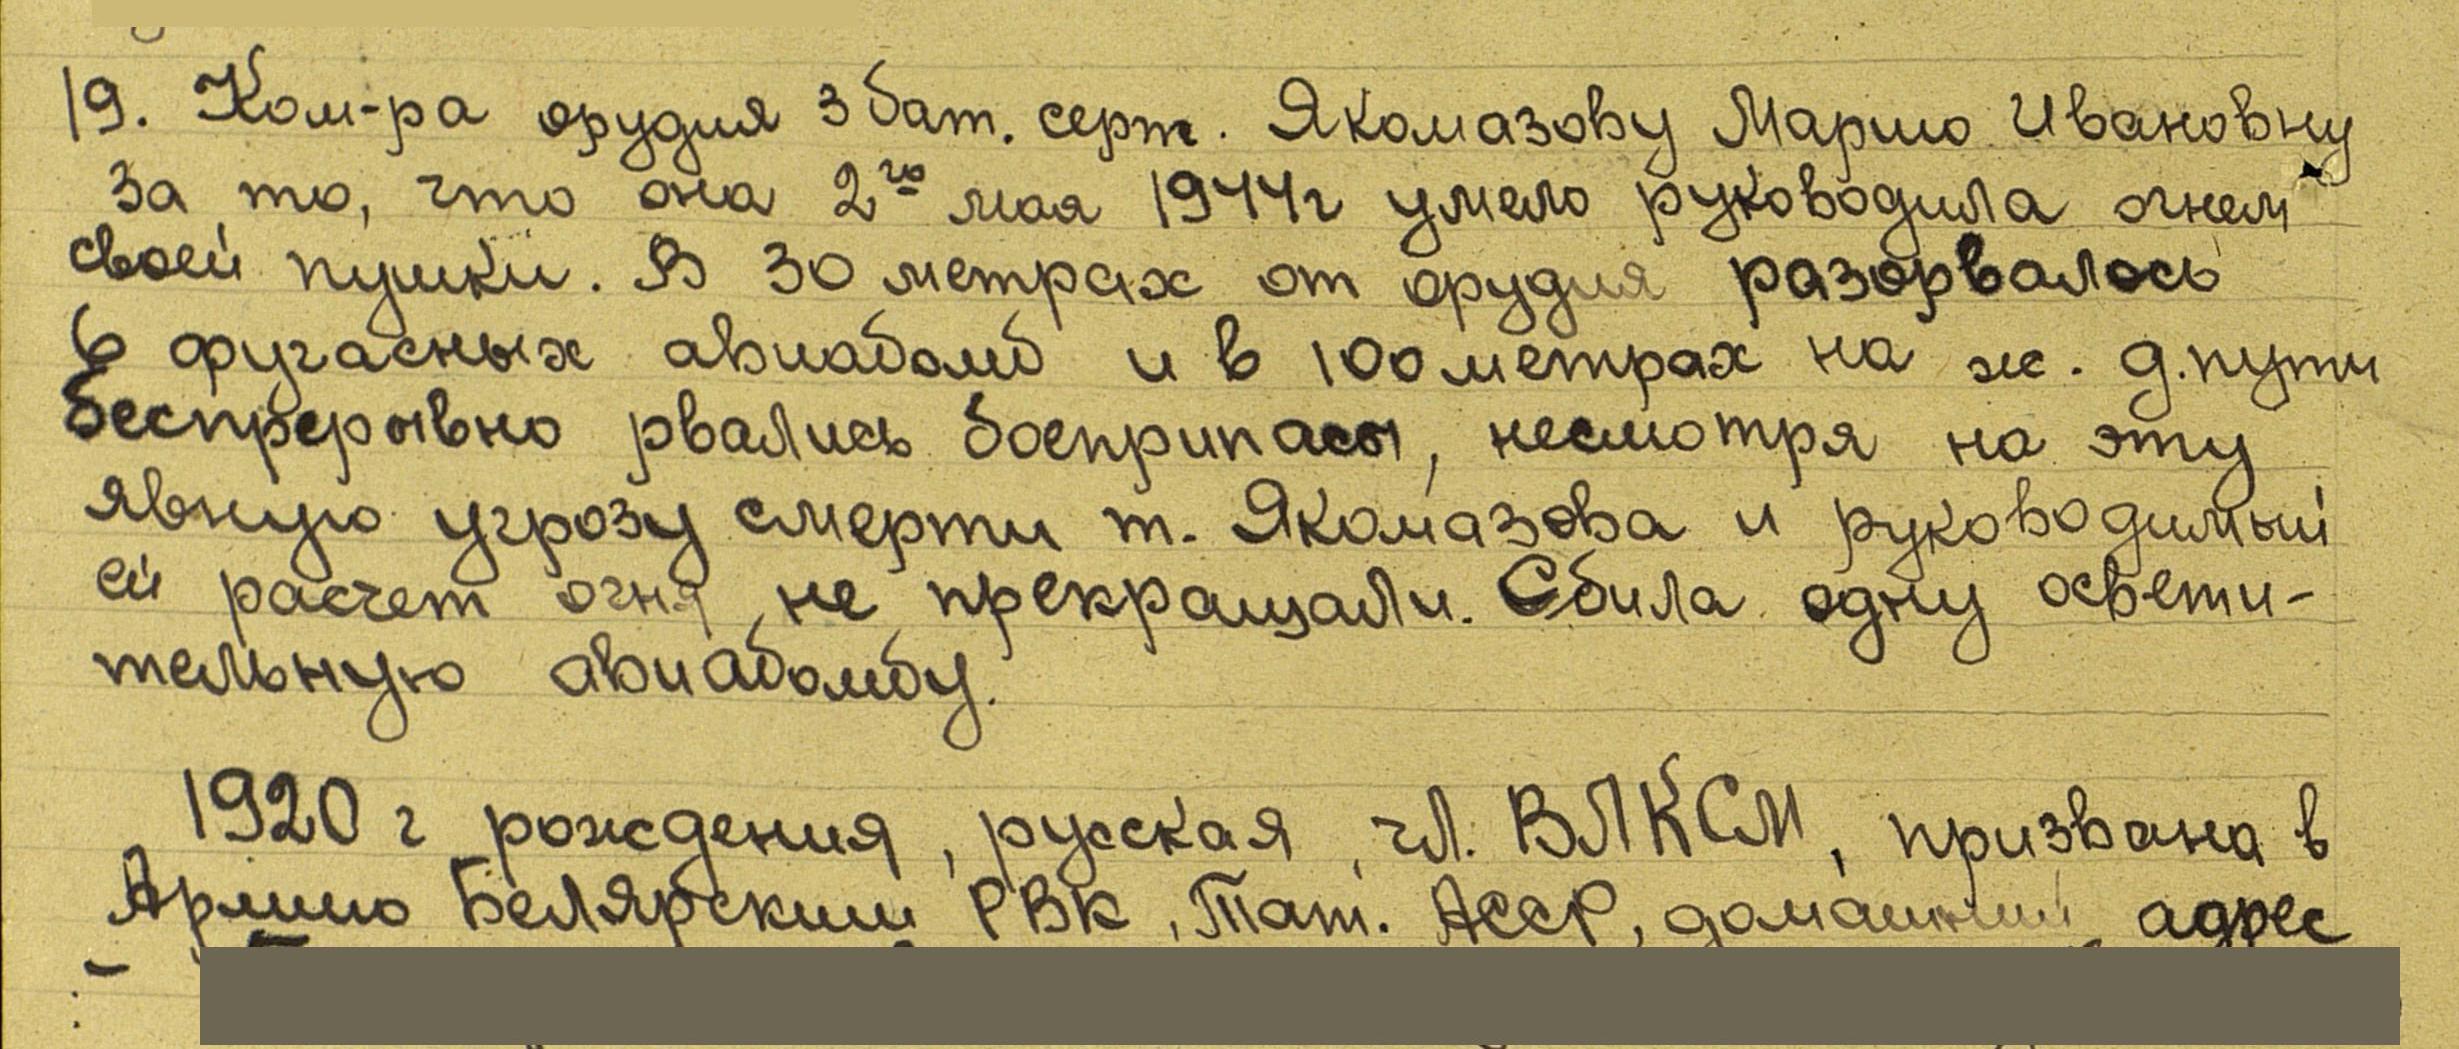 19. Ком-ра орудия 3 бат. серж. Якомазову Марию Ивановну
за то, что она 2го мая 1944г умело руководила огнем
своей пушки. В 30 метрах от орудия разорвалось
6 фугасных авиабомб и в 100 метрах на ж. д. пути
беспрерывно рвались боеприпасы, несмотря на эту
явную угрозу смерти т. Якомазова и руководимый
ей расчет огня не прекращали. Сбила одну освети-
тельную авиабомбу.
1920 г рождения, русская, чл. ВЛКСМ, призвана в
Армию Белярским РВК, Тат. АССР, домашний адрес